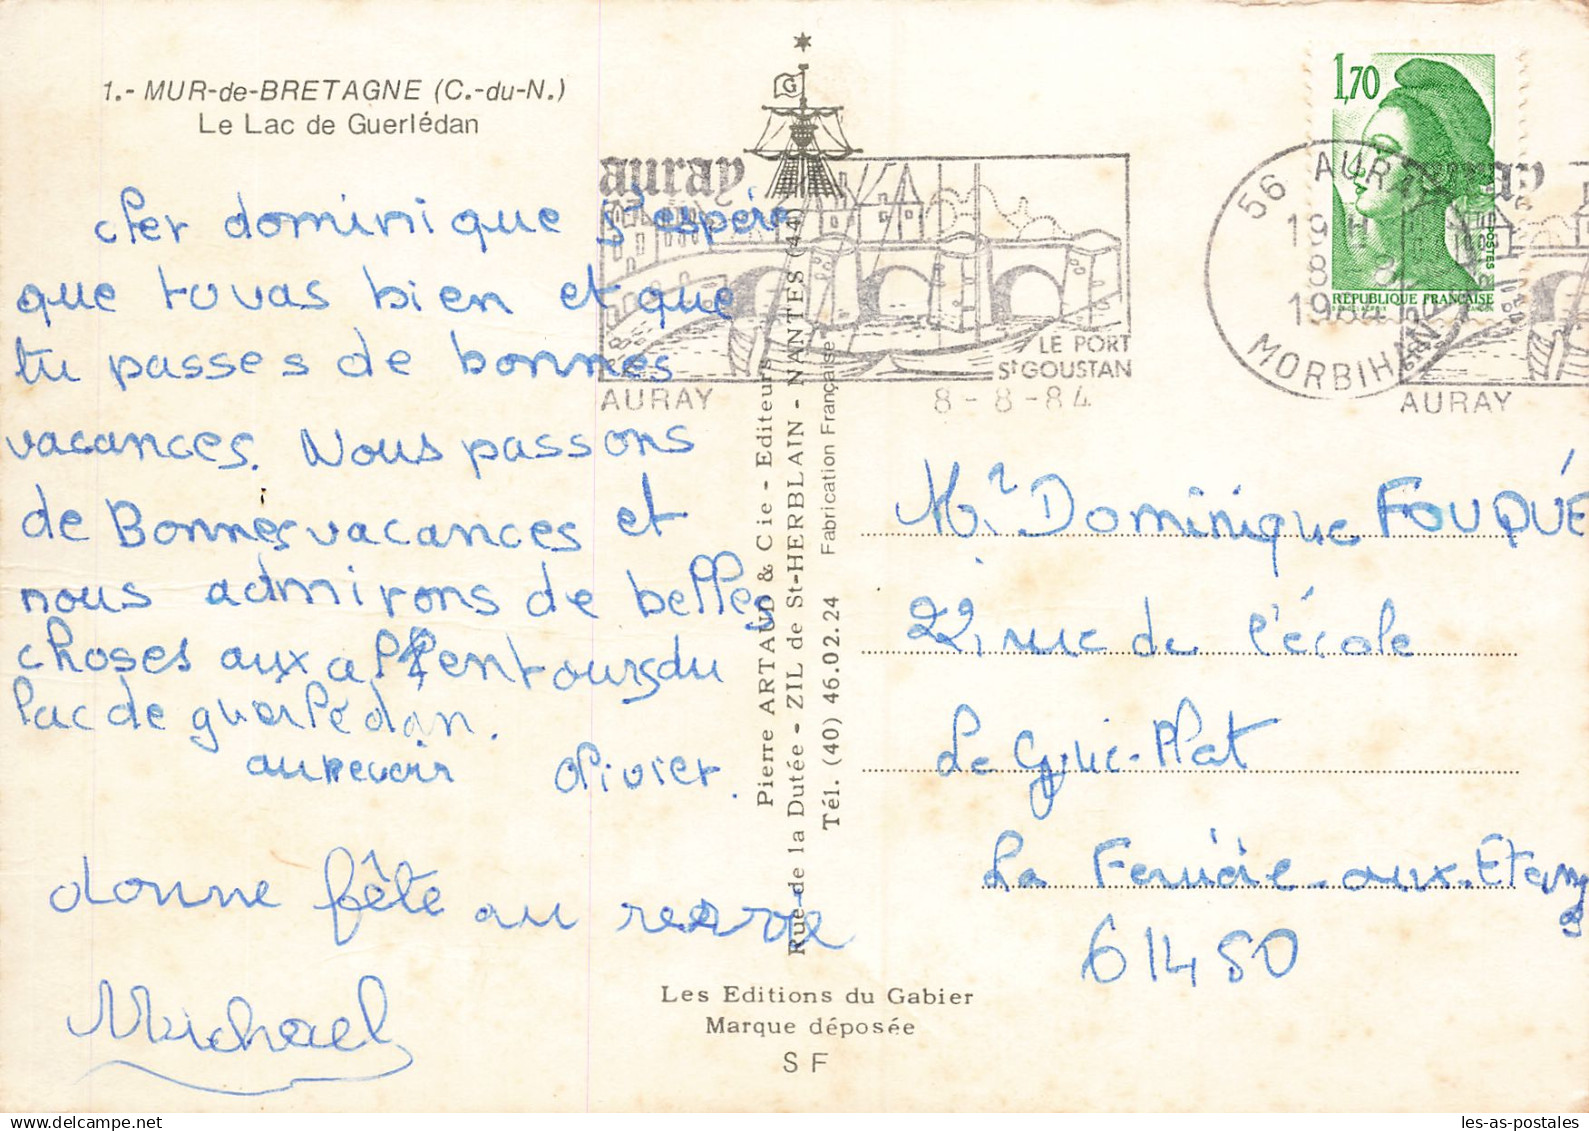 1.- MUR-de-BRETAGNE (C.-du-N.)
Le Lac de Guerlédan
cher dominique j'espère
que tu vas bien et que
tu passes de bonnes
vacances. Nous passons
de Bonnes vacances et
nous admirons de belles
choses aux alentours du
lac de guerlédan.
au revoir olivier.
donne fête au
Michael
Pierre ARTAUD & Cie - Editeurs
Rue de la Dutée - ZIL de St-HERBLAIN - NANTES (44)
Tél. (40) 46.02.24 Fabrication Française
Les Editions du Gabier
Marque déposée
S F
G
auray
LE PORT
St GOUSTAN
AURAY 8-8-84
1,70
POSTES
RÉPUBLIQUE FRANÇAISE
56 AURAY
19 H
8-8
1984
MORBIHAN
auray
AURAY
Mr. Dominique FOUQUÉ
22, rue de l'école
Le Gué-Plat
La Ferrière-aux-Etang
61450
les-as-postales